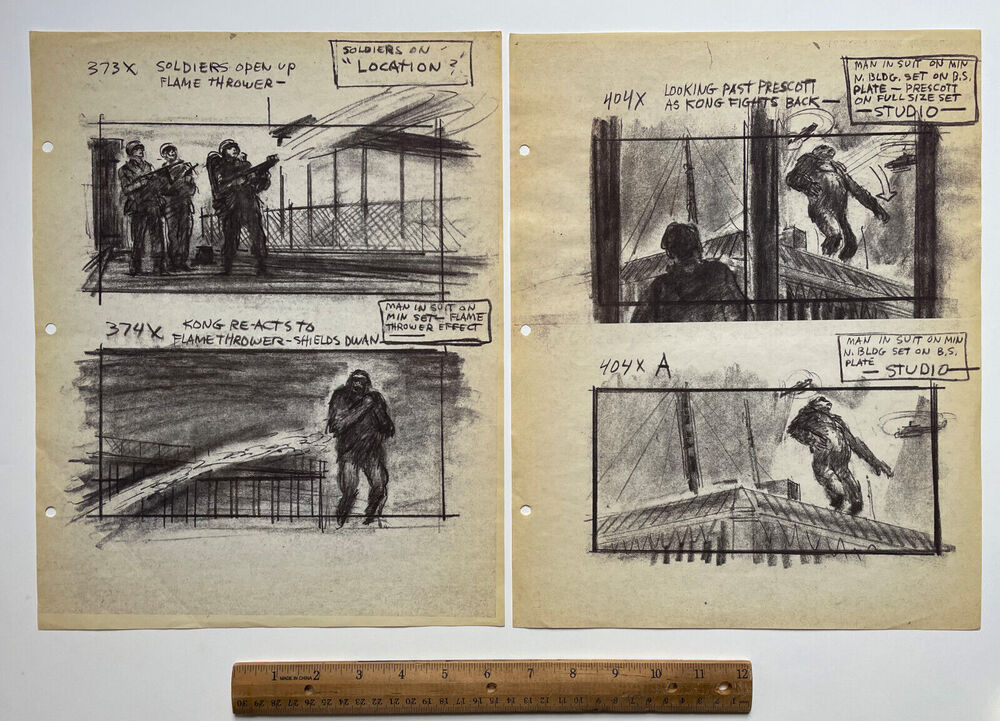 373X SOLDIERS OPEN UP
FLAME THROWER —
SOLDIERS ON
"LOCATION"?
374X KONG RE-ACTS TO
FLAME THROWER - SHIELDS DWAN
MAN IN SUIT ON
MIN SET - FLAME
THROWER EFFECT
404X LOOKING PAST PRESCOTT
AS KONG FIGHTS BACK —
MAN IN SUIT ON MIN
N. BLDG. SET ON B.S.
PLATE — PRESCOTT
ON FULL SIZE SET
— STUDIO —
404X A
MAN IN SUIT ON MIN
N. BLDG SET ON B.S.
PLATE
— STUDIO —
1 2 3 4 5 6 7 8 9 10 11 12
MADE IN CHINA
30 29 28 27 26 25 24 23 22 21 20 19 18 17 16 15 14 13 12 11 10 9 8 7 6 5 4 3 2 1